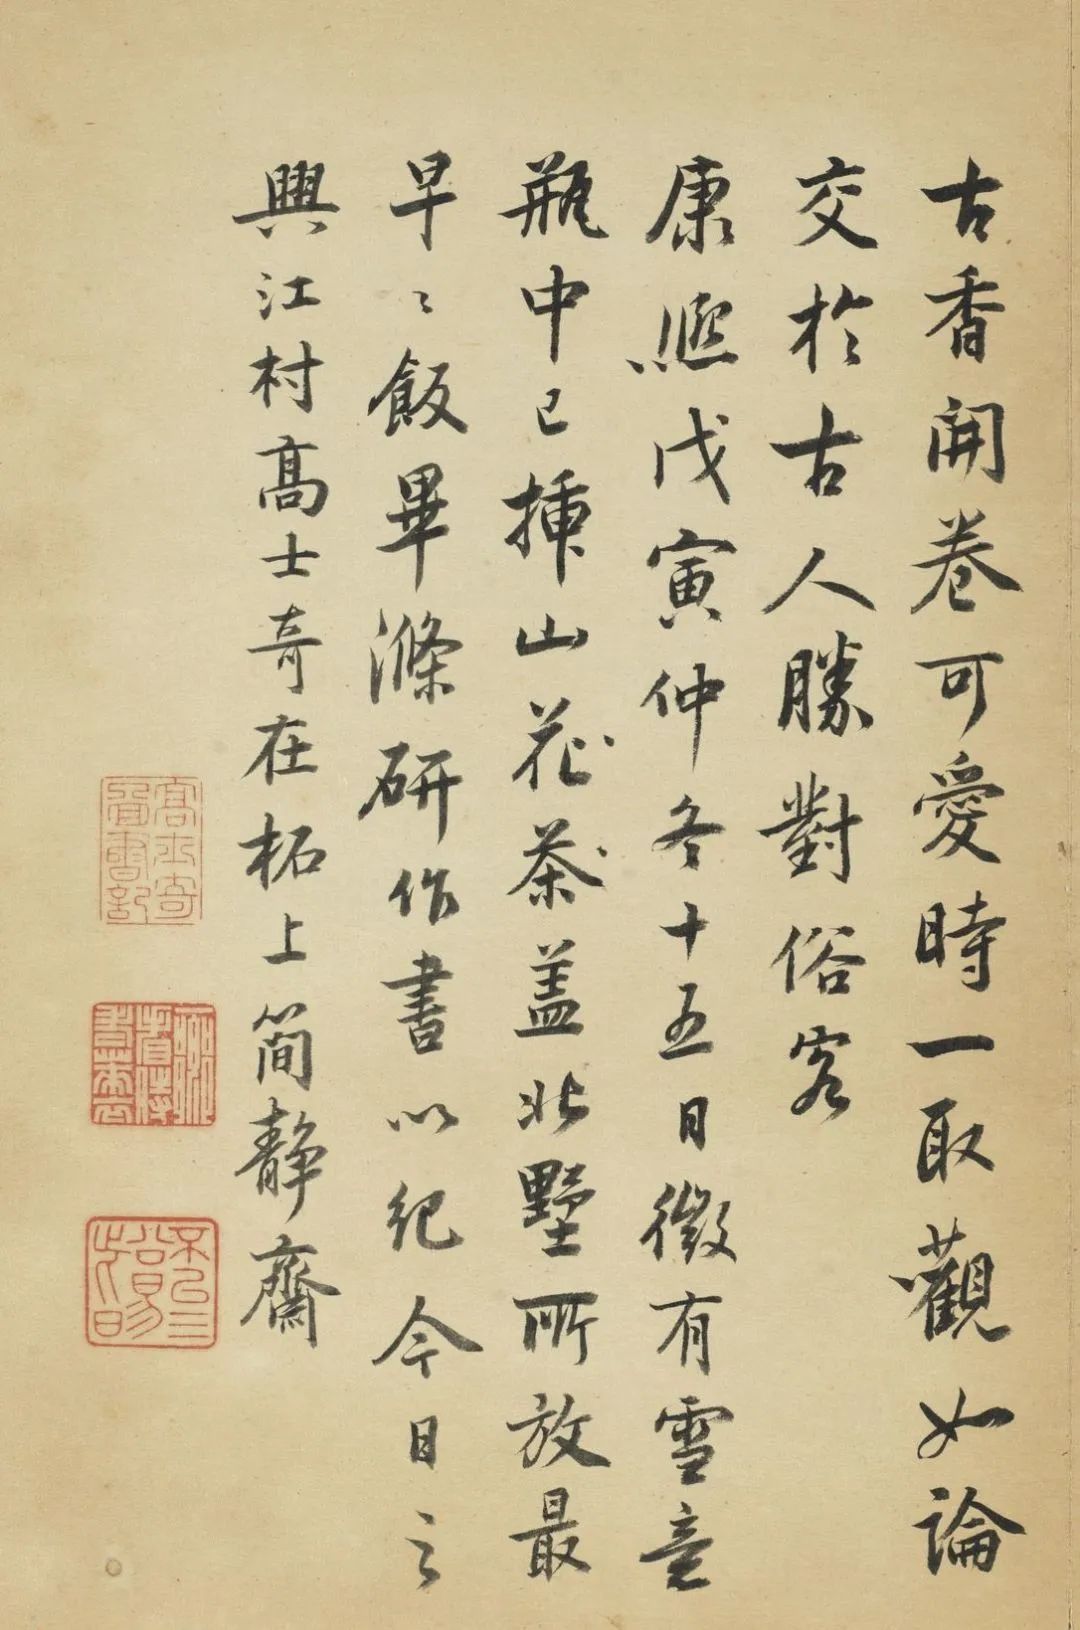 古香開卷可愛時一取觀如論
交於古人勝對俗客
康熙戊寅仲冬十五日微有雪意
瓶中已挿山花茶盖北墅所放最
早〻飯畢滌研作書以紀今日之
興江村高士奇在柘上簡靜齋
高士奇圖書記